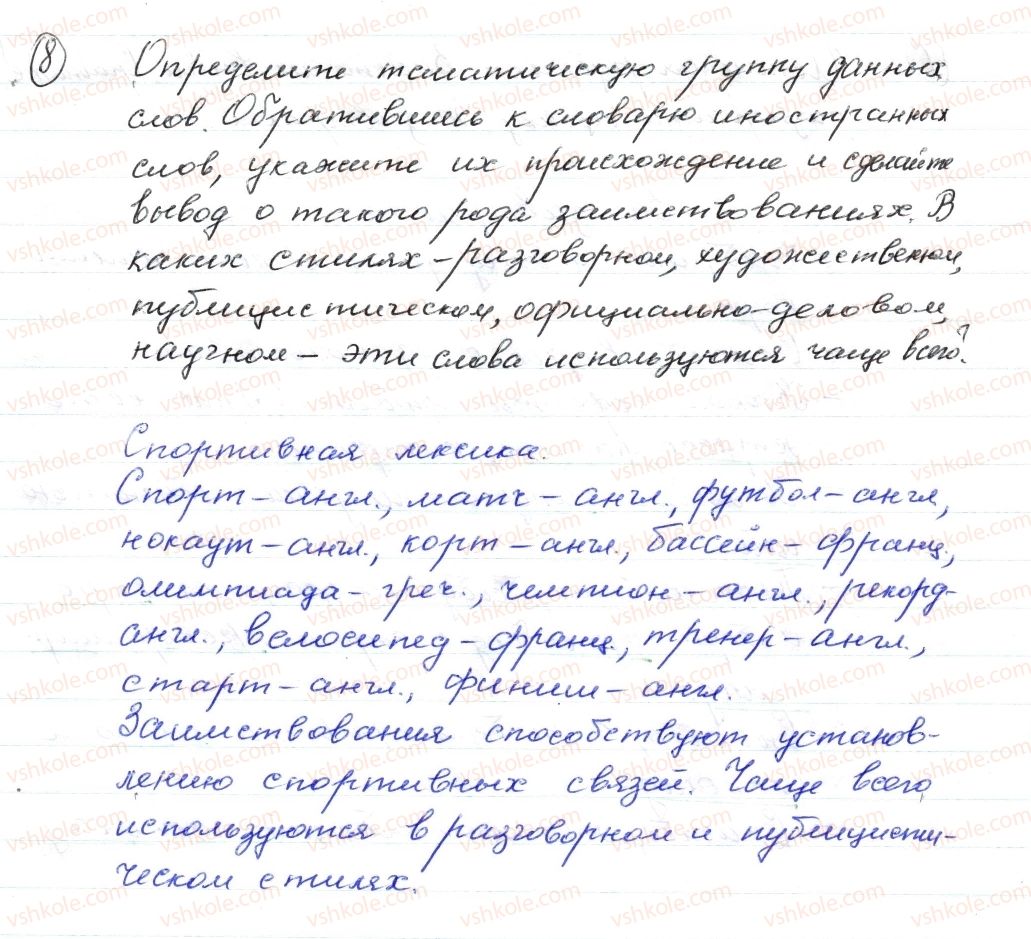 8
Определите тематическую группу данных
слов. Обратившись к словарю иностранных
слов, укажите их происхождение и сделайте
вывод о такого рода заимствованиях. В
каких стилях – разговорном, художественном,
публицистическом, официально-деловом,
научном – эти слова используются чаще всего?
Спортивная лексика.
Спорт – англ., матч – англ., футбол – англ.,
нокаут – англ., корт – англ., бассейн – франц.,
олимпиада – греч., чемпион – англ., рекорд-
англ., велосипед – франц., тренер – англ.,
старт – англ., финиш – англ.
Заимствования способствуют установ-
лению спортивных связей. Чаще всего
используются в разговорном и публицисти-
ческом стилях.